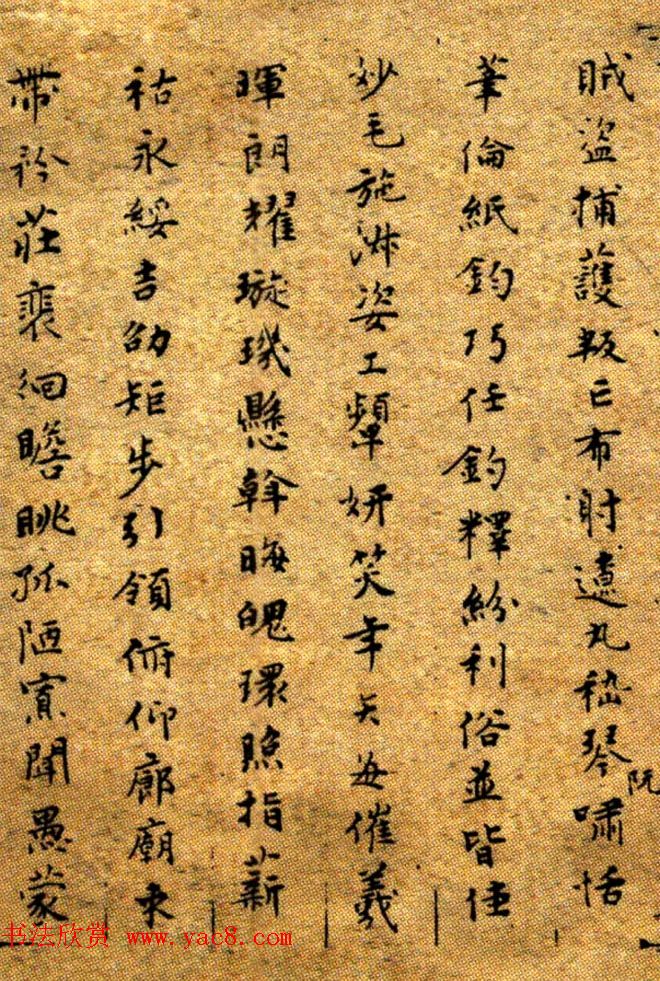 賊盜捕護叛亡布射遼丸嵇琴阮嘯恬
筆倫紙鈞巧任釣釋紛利俗並皆佳
妙毛施淑姿工顰妍笑年矢每催羲
暉朗耀璇璣懸斡晦魄環照指薪
祜永綏吉劭矩步引領俯仰廊廟束
帶矜莊裴徊瞻眺孤陋寡聞愚蒙
书法欣赏 www.yac8.com